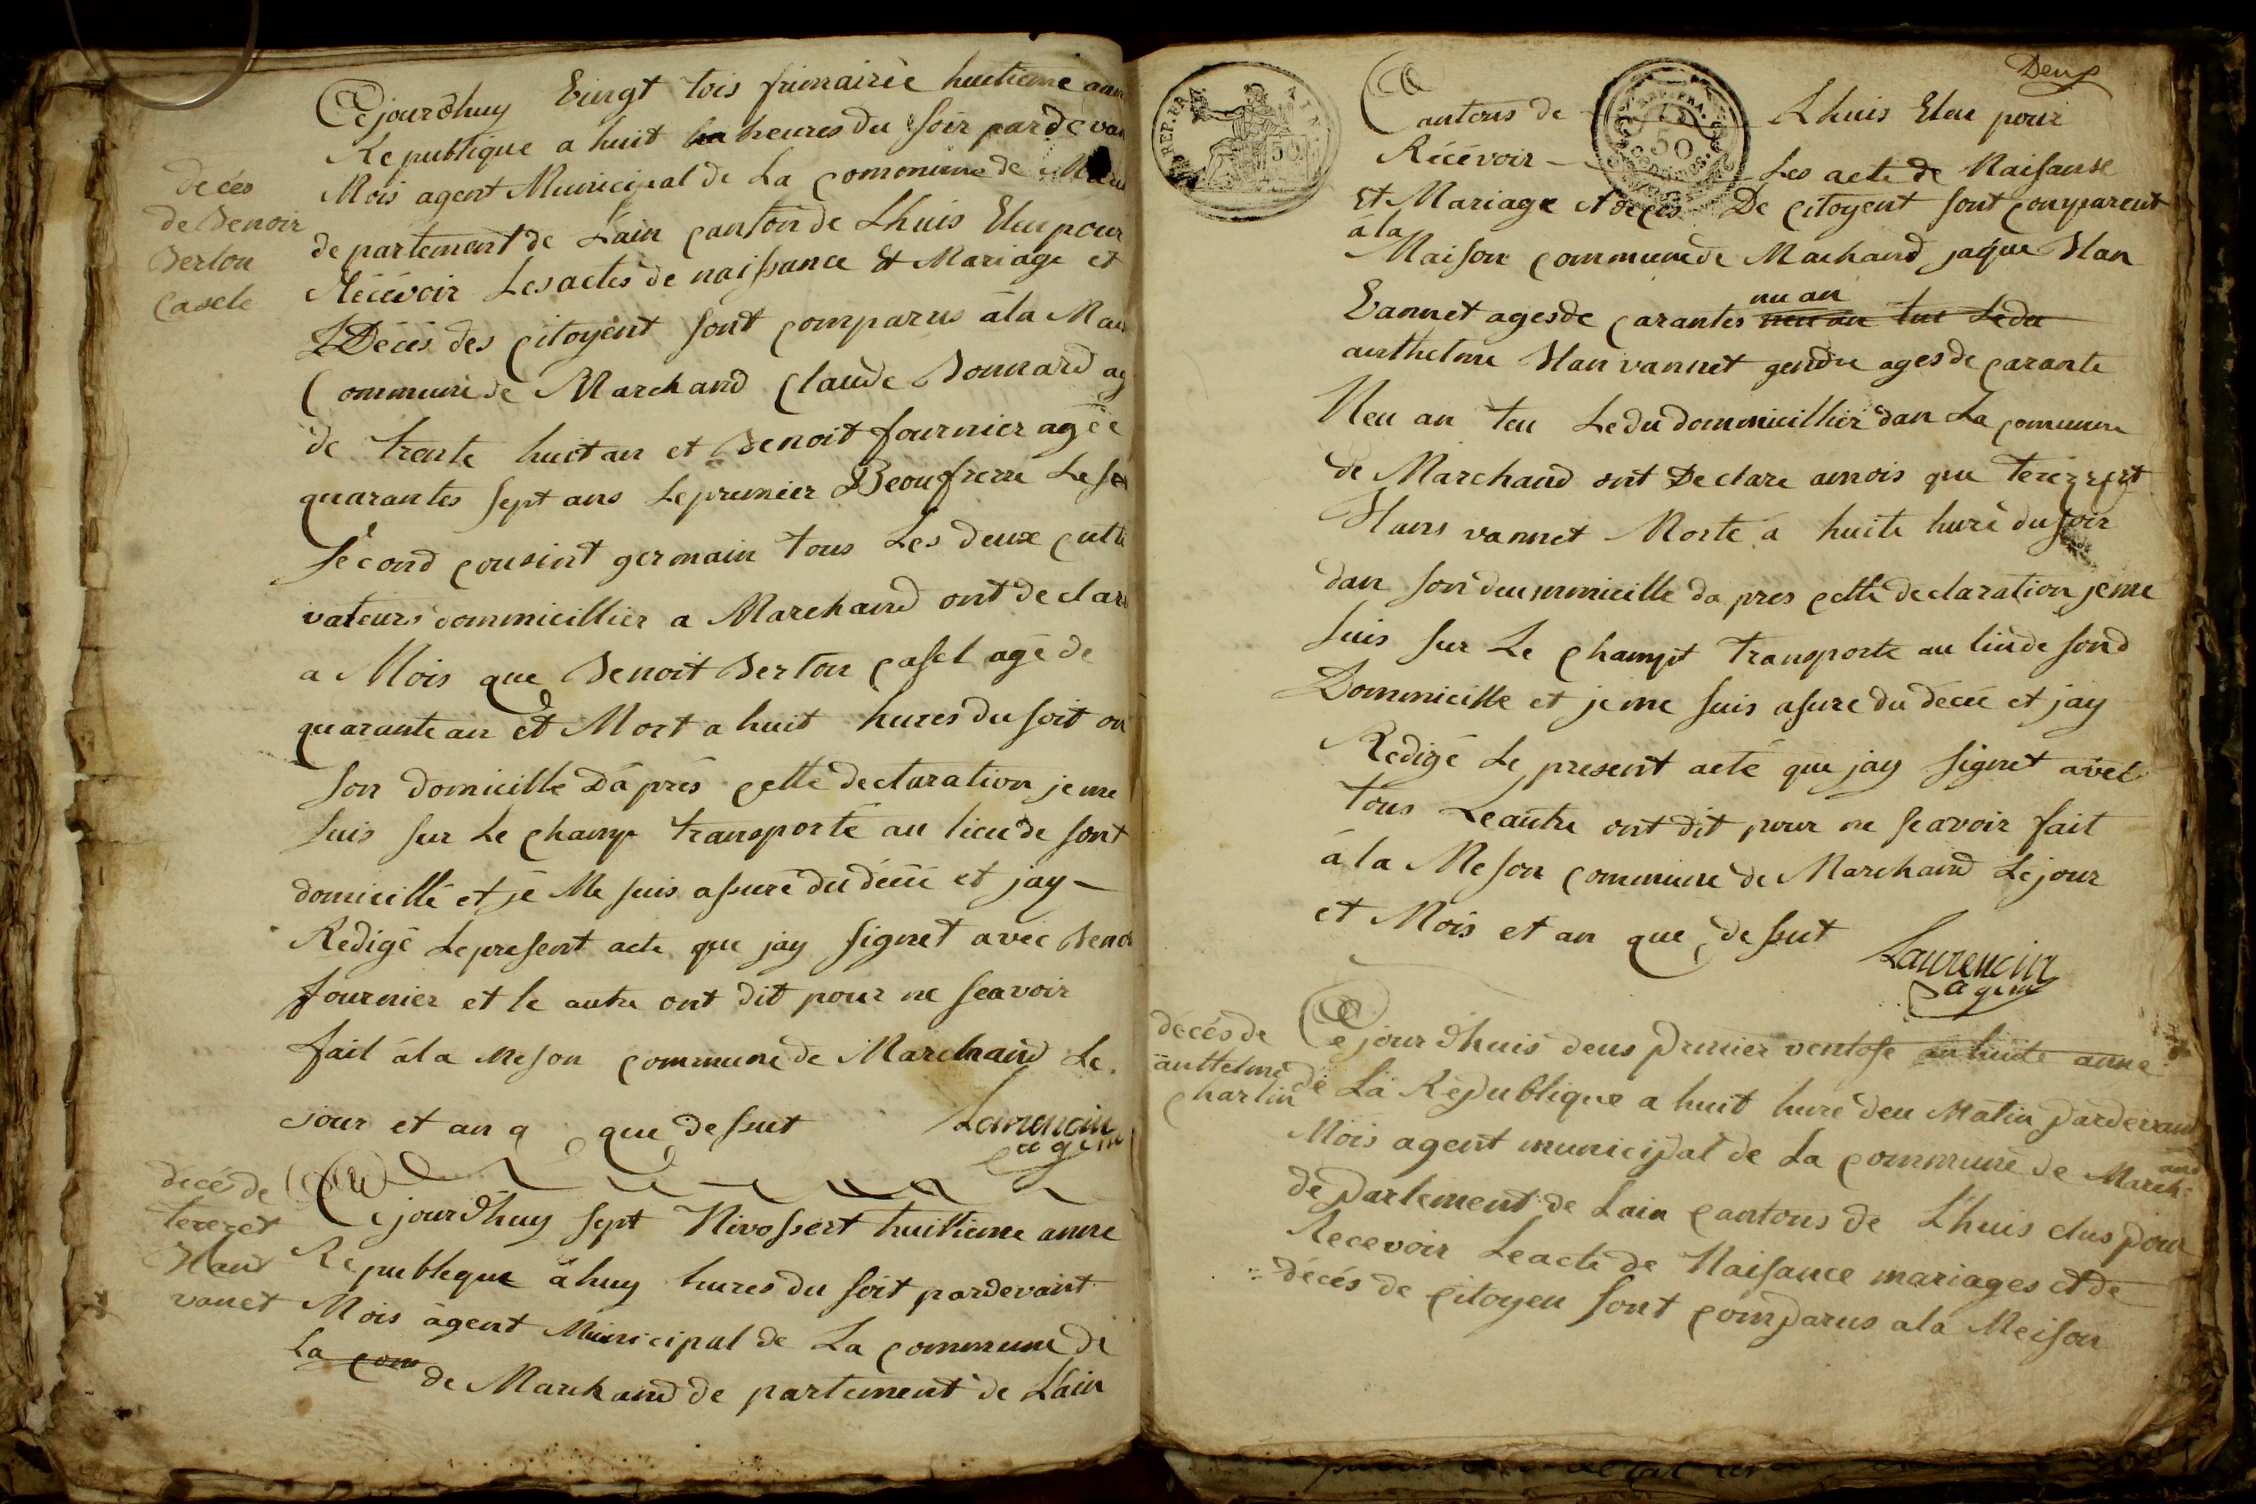 Cejourdhuy Vingt tois frimairie huitieme ann
Republique a huit heures du soir pardevan
Mois agent Municipal de La commune de
departement de Lain canton de Lhuis Eleu pour
Récévoir Les actes de naissance Et Mariage et
Décés des citoyent sont comparus àla Mai
Commune de Marchand Claude Bonnard ag
de trente huit an et Benoit fournier agée
quarantes sept ans Le premier Beoufrerre Le
sécond cousint germain tous Les deux culti
vateurs dommicillier a Marchand ont declare
a Mois que Benoit Berlon casel agé de
quarante an et Mort a huit hures du soit
son domicille Dáprés cette declaration je me
suis sur Le champ transporté au lieu de sont
domicillé et jé Me suis assuré du décée et jay
Redigé Le present acte que jay signet avec Beno
fournier et le autre ont dit pour ne seavoir
fait àla Meson commune de Marchand Le
jour et an q que dessut Laurencin
agent
décés
de Benoir
Berlon
casele
Cejourdhuy sept Nivossert huittieme anne
Republeque àhuy hures du soit pardevant
Mois àgent Municipal de La commune de
La com de Marchand departement de Lain
décés de
terezet
Hand
vanet
Deux
REP. FRA.
50
REP. FRA.
50
Cantons de Lhuis Eleu pour
Récévoir Les acte de Naisanse
Et Mariage et décés De citoyent sont comparent
à la
Maison commune de Machand jaque Han
nu an
Vannet ages de carantes neu an tu Ledu
anthelme Han vannet gendre ages de carante
Neu an tou Ledu dommicillier dan La comunne
de Marchand ont Declare amois que terezzert
Hans vannet Morte à huite huré du soir
dan son doummicille da pres cette declaration jeme
suis sur Le champt transporte au liu de sond
Dommicille et je me suis asure du décée et jay
Redigé Le present acté que jay signet avec
tous Leautre ont dit pour ne seavoir fait
à la Meson commune de Marchand Le jour
et Mois et an que dessut Laurencin
agent
décés de
anttelme
charlin
Cejourdhuis deus Premier ventose an huite anne
de La Republique a huit hure deu Matin Pardevant
Mois agent municipal de La commune de March
and
departement de Lain cantons de Lhuis elus pour
Recevoir Leacte de Naisance mariages et de
décés de citoyen sont comparus ala Meison